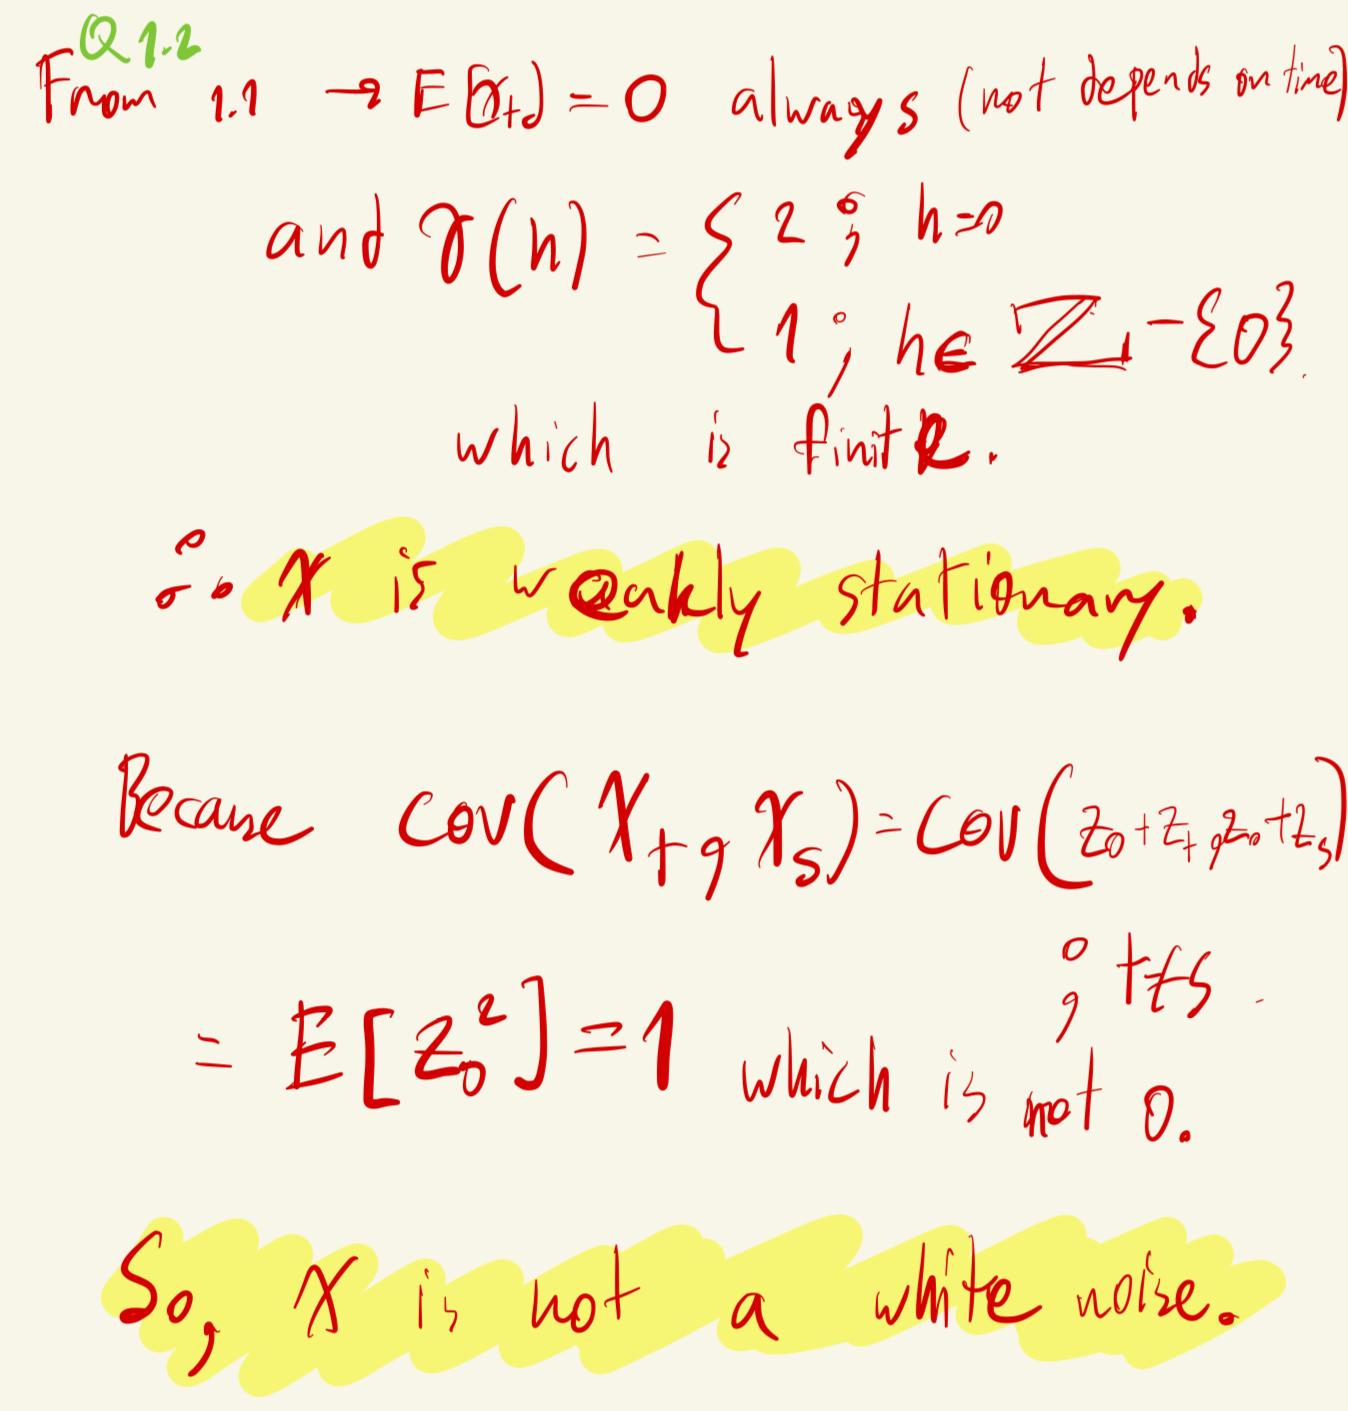 Q 1.2
From 1.1 → E[X_t] = 0 always (not depends on time)
and γ(h) = { 2 ; h=0
1 ; h∈ ℤ - {0}.
which is finite.
∴ X is weakly stationary.
Because cov(X_t, X_s) = cov(z_0+z_t, z_0+z_s)
; t≠s.
= E[z_0^2] = 1 which is not 0.
So, X is not a white noise.